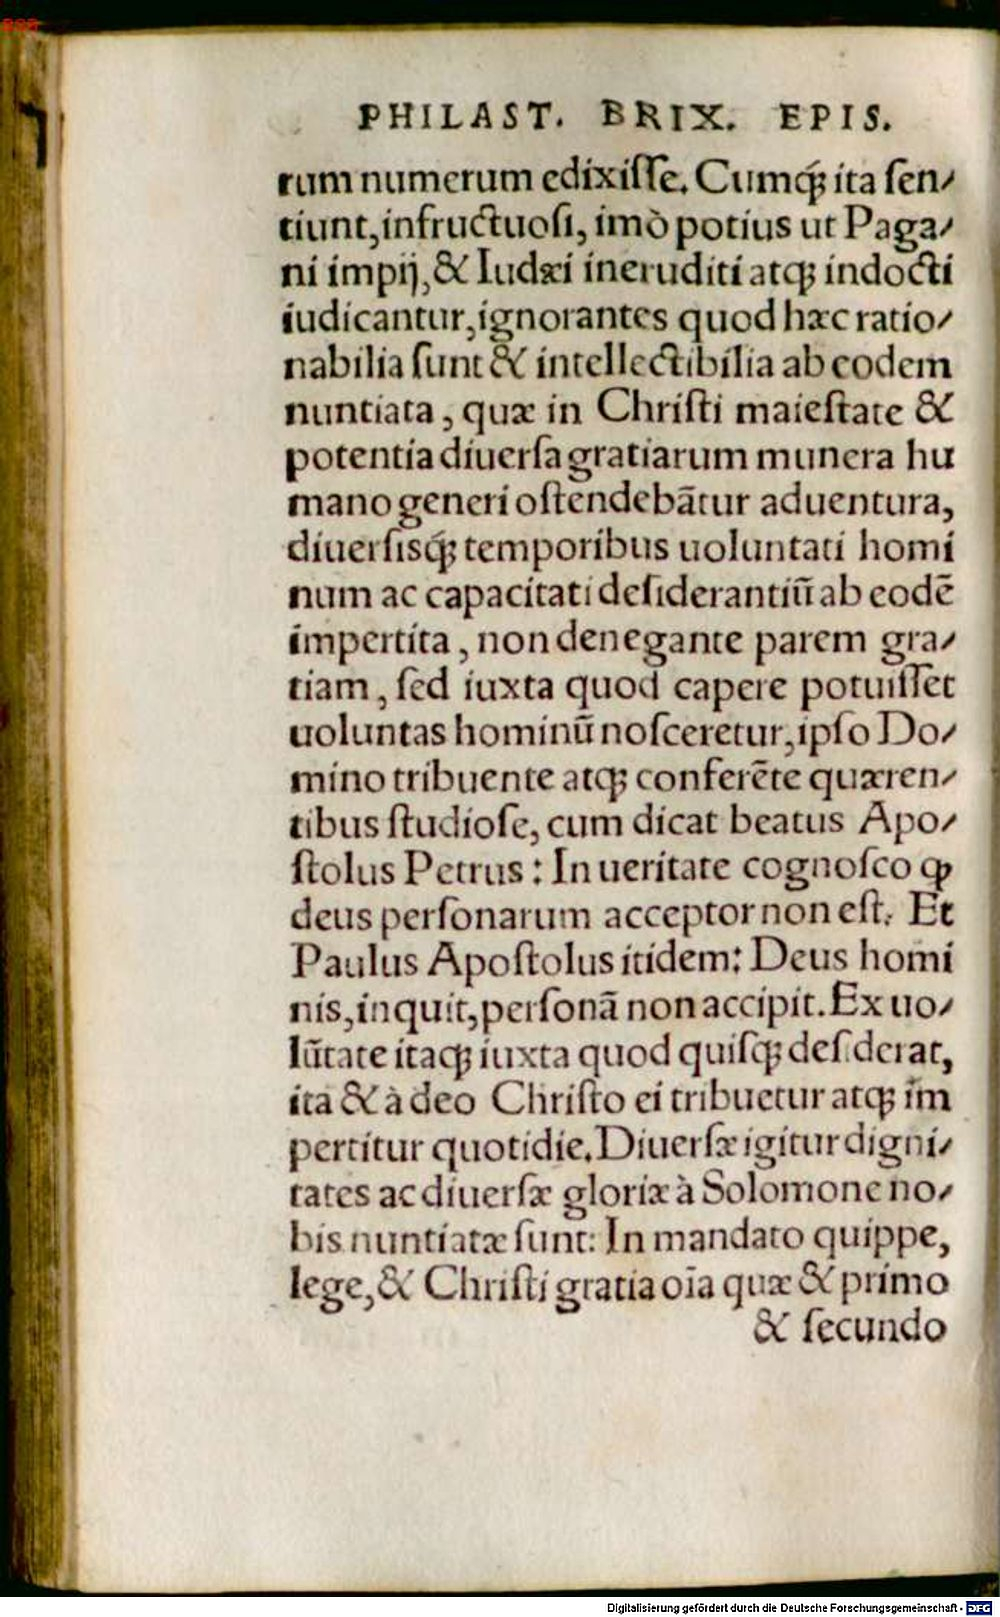 PHILAST. BRIX. EPIS.
rum numerum edixiſſe. Cumq́ꝫ ita ſen⸗
tiunt, infructuoſi, imò potius ut Paga⸗
ni impij, & Iudæi ineruditi atqꝫ indocti
iudicantur, ignorantes quod hæc ratio⸗
nabilia ſunt & intellectibilia ab eodem
nuntiata, quæ in Chriſti maieſtate &
potentia diuerſa gratiarum munera hu
mano generi oſtendebãtur aduentura,
diuerſisq́ꝫ temporibus uoluntati homi
num ac capacitati deſiderantiũ ab eodẽ
impertita, non denegante parem gra⸗
tiam, ſed iuxta quod capere potuiſſet
uoluntas hominũ noſceretur, ipſo Do⸗
mino tribuente atqꝫ conferẽte quæren⸗
tibus ſtudioſe, cum dicat beatus Apo⸗
ſtolus Petrus: In ueritate cognoſco ꝙ
deus perſonarum acceptor non eſt. Et
Paulus Apoſtolus itidem: Deus homi
nis, inquit, perſonã non accipit. Ex uo⸗
lũtate itaqꝫ iuxta quod quiſqꝫ deſiderat,
ita & à deo Chriſto ei tribuetur atqꝫ im̃
pertitur quotidie. Diuerſæ igitur digni⸗
tates ac diuerſæ gloriæ à Solomone no⸗
bis nuntiatæ ſunt: In mandato quippe,
lege, & Chriſti gratia oĩa quæ & primo
& ſecundo
Digitalisierung gefördert durch die Deutsche Forschungsgemeinschaft - DFG